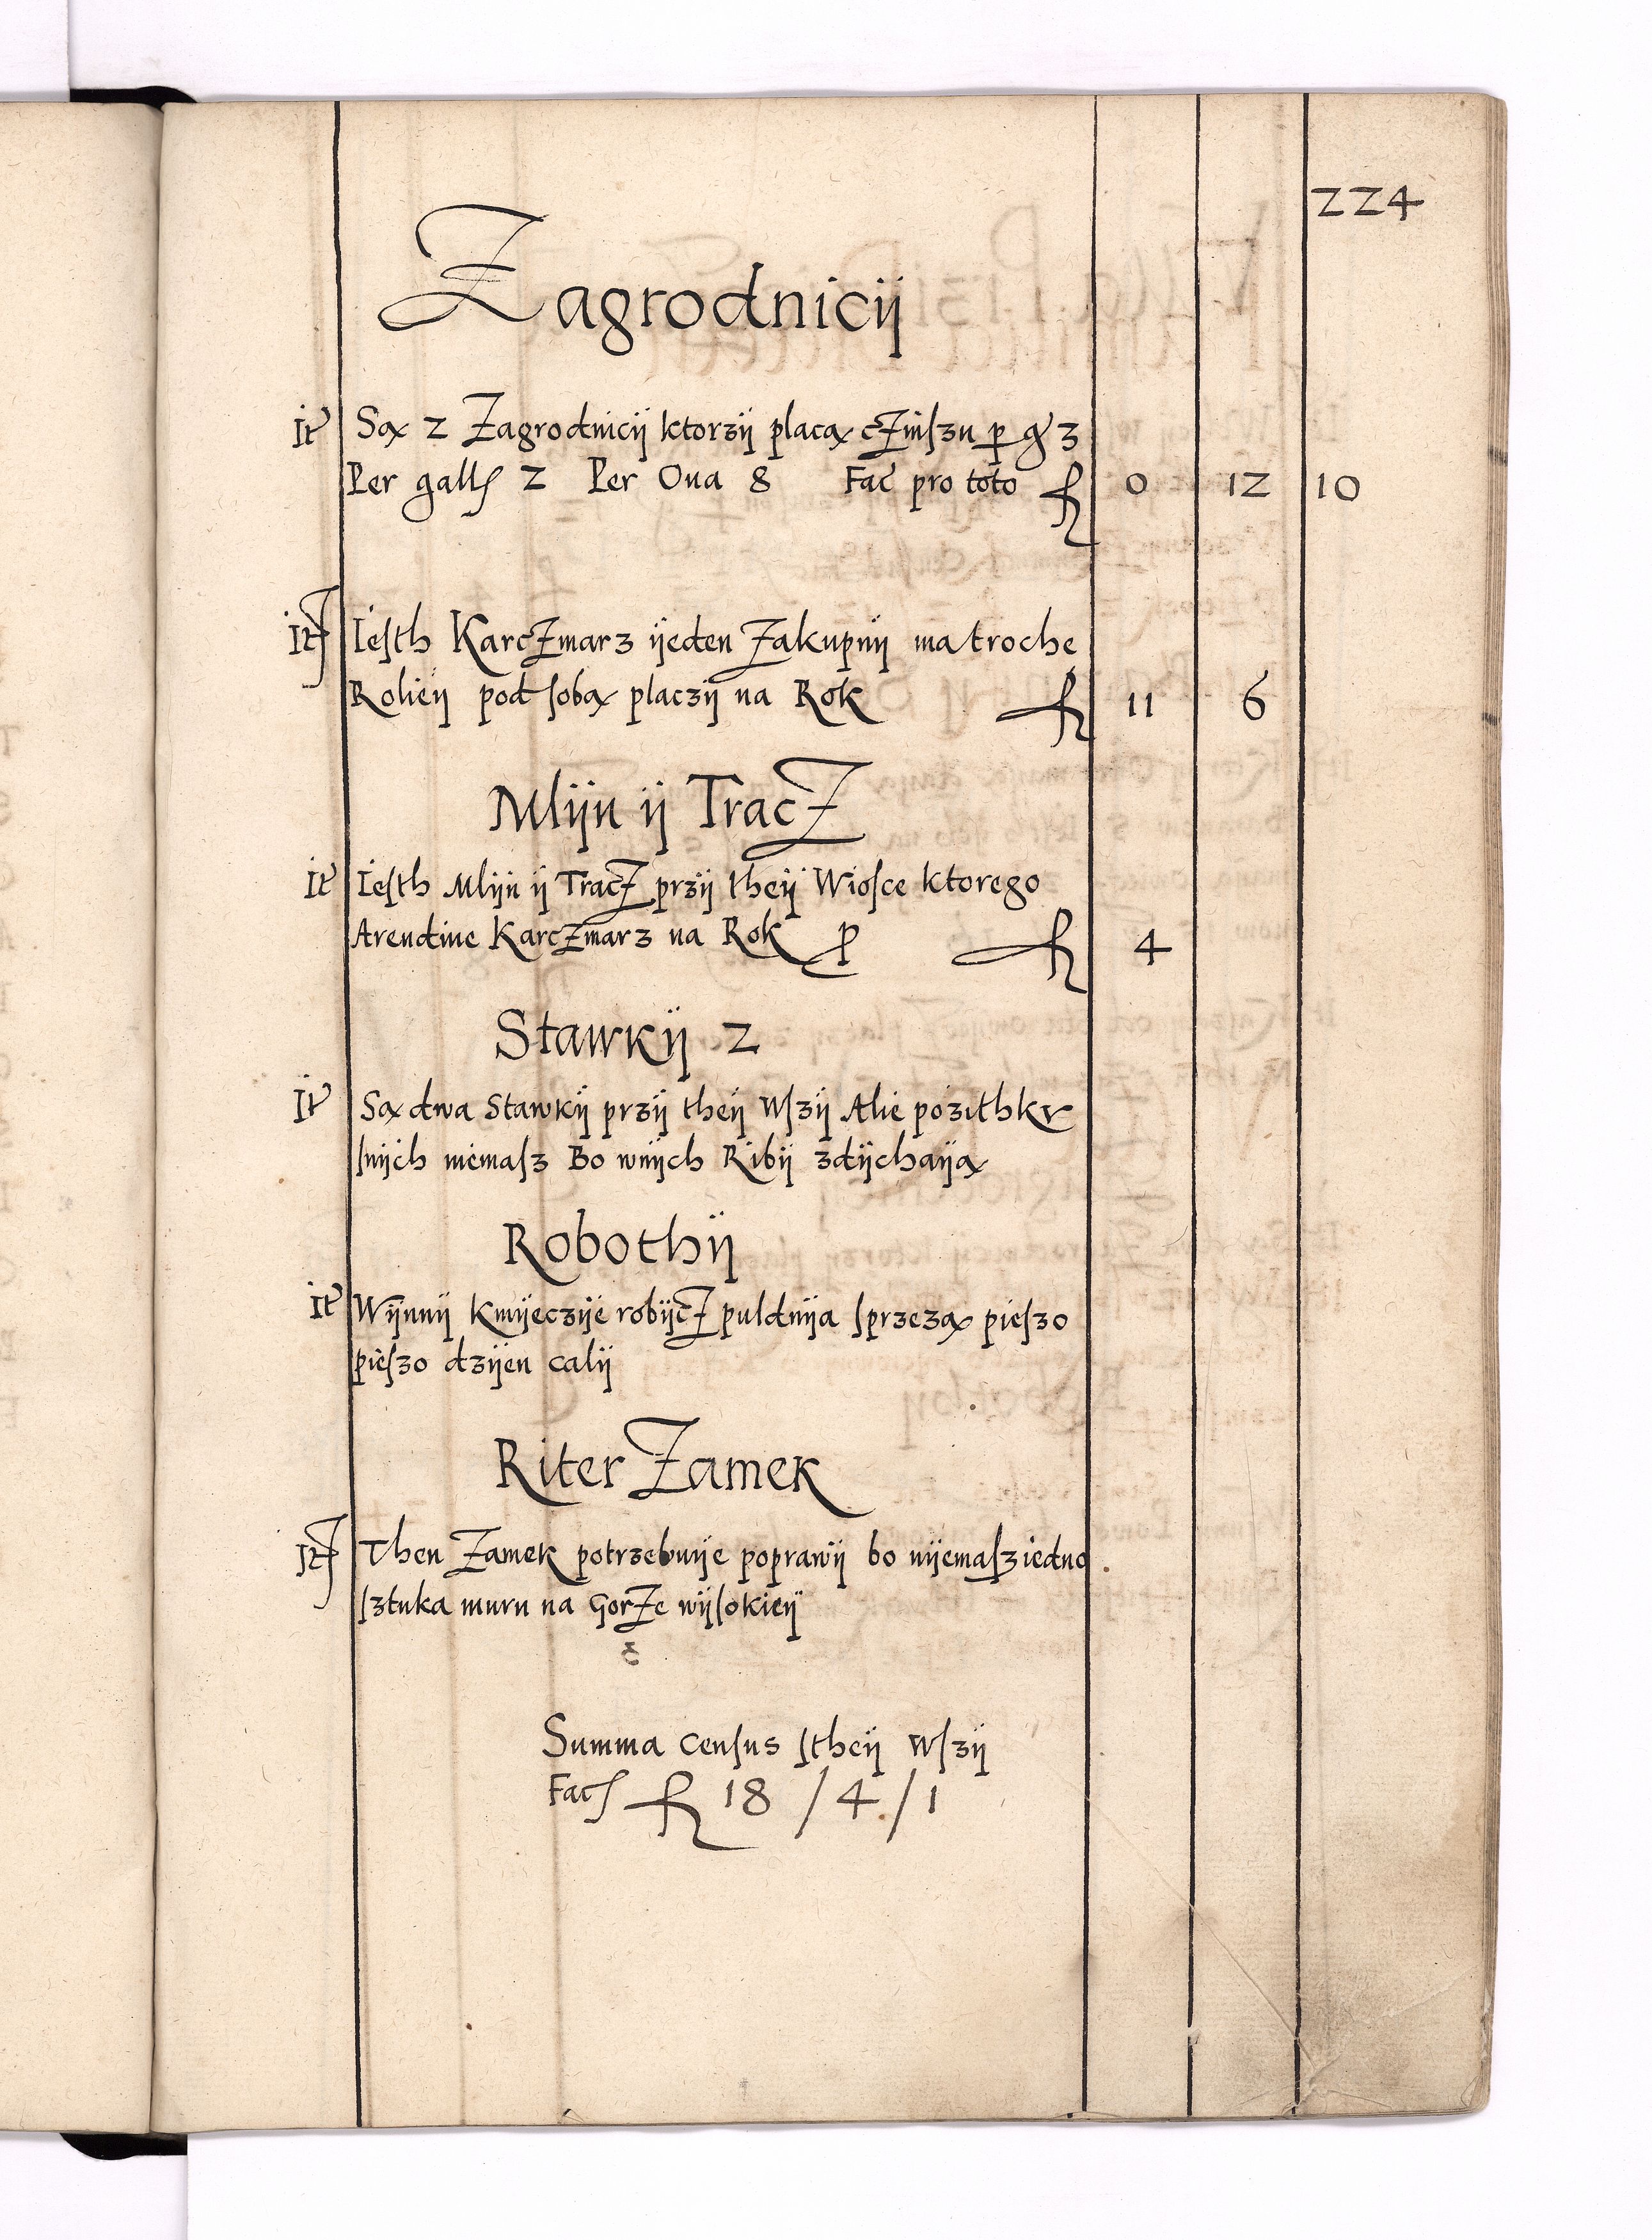 224
Zagrodnicÿ
It Są 2 Zagrodnicÿ ktorzÿ placą cZinſzu p gr 3
Per gallſ 2 Per Oua 8 Fac pro toto fl 0 12 10
It Ieſth KarcZmarz ÿeden Zakupnÿ ma troche
Rolieÿ pod ſobą placzÿ na Rok fl 11 6
Mlÿn ÿ TracZ
It Ieſth Mlÿn ÿ TracZ przÿ theÿ Wioſce ktorego
Arendiue KarcZmarz na Rok p fl 4
Stawkÿ 2
It Są dwa Stawkÿ przÿ theÿ Wſzÿ Alie pozithkv
ſnÿch niemaſz Bo wnÿch Ribÿ zdÿchaÿą
Robothÿ
It Wÿnnÿ Kmÿeczÿe robÿcZ puldnÿa ſprzezą pieſzo
pieſzo dzÿen calÿ
Riter Zamek
It Then Zamek potrzebuÿe poprawÿ bo nÿemaſz iedno
ſztuka muru na GorZe wÿſokieÿ
Summa Cenſus ſtheÿ Wſzÿ
Facſ fl 18 / 4 / 1